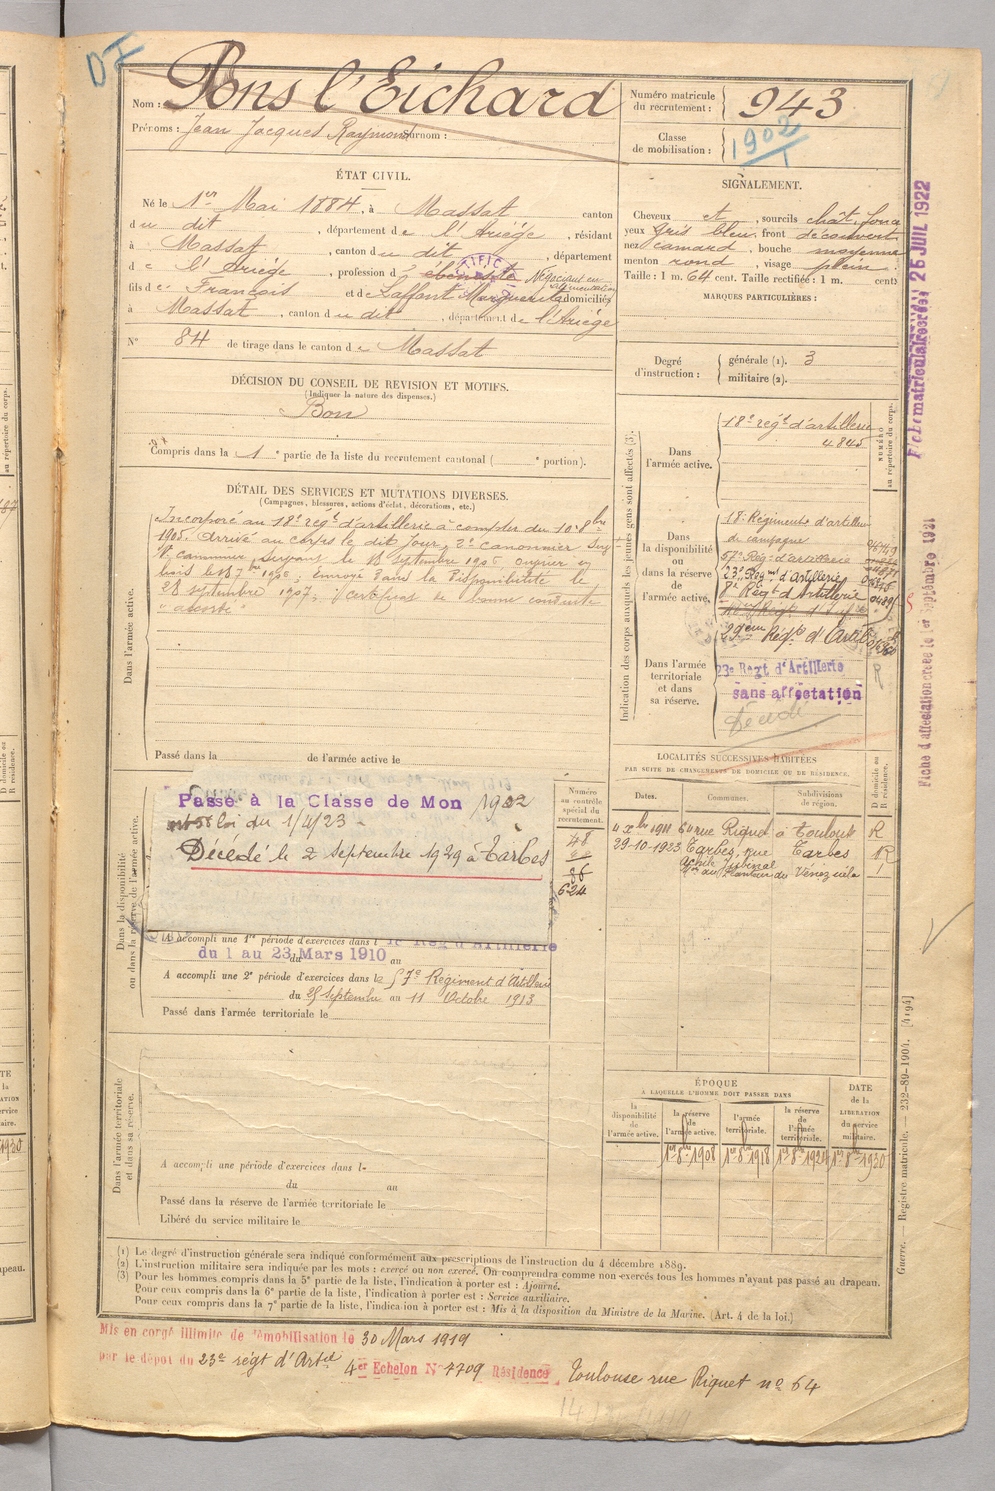 DF
Nom : Pons l'Eichard
Prénoms : Jean Jacques Raymond Surnom :
Numéro matricule du recrutement : 943
Classe de mobilisation : 1902
ÉTAT CIVIL.
Né le 1er Mai 1884, à Massat canton
du dit, département de l'Ariége, résidant
à Massat, canton du dit, département
de l'Ariége, profession d'ébéniste Négociant en alimentation
fils de François et de Laffont Marguerite domiciliés
à Massat, canton du dit, département de l'Ariége
N° 84 de tirage dans le canton de Massat
SIGNALEMENT.
Cheveux et, sourcils chât. foncé
yeux gris bleu, front découvert
nez camard, bouche moyenne
menton rond, visage plein
Taille : 1 m. 64 cent. Taille rectifiée : 1 m. cent.
MARQUES PARTICULIÈRES :
Degré d'instruction : générale (1). 3
militaire (2).
DÉCISION DU CONSEIL DE REVISION ET MOTIFS.
(Indiquer la nature des dispenses.)
Bon
Compris dans la 1e partie de la liste du recrutement cantonal ( e portion).
DÉTAIL DES SERVICES ET MUTATIONS DIVERSES.
(Campagnes, blessures, actions d'éclat, décorations, etc.)
Dans l'armée active.
Incorporé au 18e régt d'artillerie à compter du 10 8bre
1905. Arrivé au corps le dit jour, 2e canonnier
servant le 18 septembre 1906 ouvrier en
bois le 7bre 1906. Envoyé dans la disponibilité le
28 septembre 1907. Certificat de bonne conduite
"accordé"
Passé dans la de l'armée active le
Indication des corps auxquels les jeunes gens sont affectés (3).
NUMÉRO au répertoire du corps.
Dans l'armée active.
18e régt d'artillerie
4.845
Dans la disponibilité ou dans la réserve de l'armée active.
18e Régiment d'artillerie
de campagne
57e Rég. d'artillerie
23e Régmt d'Artillerie
8e Régt d'Artillerie
29ème Régt d'Artie
Dans l'armée territoriale et dans sa réserve.
23e Regt d'Artillerie
sans affectation
Décédé
R
Fiche matriculaire créée 25 JUIL 1922
Fiche d'affectation créée le 1er Septembre 1921
LOCALITÉS SUCCESSIVES HABITÉES
PAR SUITE DE CHANGEMENTS DE DOMICILE OU DE RÉSIDENCE.
Dates. Communes. Subdivisions de région. D domicile ou R résidence.
4 Xbre 1911 64 rue Riquet à Toulouse R
29-10-1923 Tarbes, rue Tarbes R
Achille Jubinal
Dans la disponibilité ou dans la réserve de l'armée active.
Numéro au contrôle spécial du recrutement.
48
86
624
Passé à la Classe de Mon 1902
loi du 1/4/23
Décédé le 2 septembre 1929 à Tarbes
A accompli une 1re période d'exercices dans l 18 Rég d'Artillerie
du 1 au 23 Mars 1910 au
A accompli une 2e période d'exercices dans le 57e Régiment d'Artillerie
du 25 Septembre au 11 Octobre 1913
Passé dans l'armée territoriale le
Dans l'armée territoriale et dans sa réserve.
A accompli une période d'exercices dans l-
du au
Passé dans la réserve de l'armée territoriale le
Libéré du service militaire le
ÉPOQUE
A LAQUELLE L'HOMME DOIT PASSER DANS
la disponibilité de l'armée active. la réserve de l'armée active. l'armée territoriale. la réserve de l'armée territoriale. DATE de la LIBÉRATION du service militaire.
1er 8bre 1908 1er 8bre 1918 1er 8bre 1924 1er 8bre 1930
Guerre. Registre matricule. — 232-89-1904. [4194]
(1) Le degré d'instruction générale sera indiqué conformément aux prescriptions de l'instruction du 4 décembre 1889.
(2) L'instruction militaire sera indiquée par les mots : exercé ou non exercé. On comprendra comme non exercés tous les hommes n'ayant pas passé au drapeau.
(3) Pour les hommes compris dans la 5e partie de la liste, l'indication à porter est : Ajourné.
Pour ceux compris dans la 6e partie de la liste, l'indication à porter est : Service auxiliaire.
Pour ceux compris dans la 7e partie de la liste, l'indication à porter est : Mis à la disposition du Ministre de la Marine. (Art. 4 de la loi.)
Mis en congé illimité de démobilisation le 30 Mars 1919
par le dépôt du 23e régt d'Artie 4er Echelon N° 7709 Résidence Toulouse rue Riquet n° 64